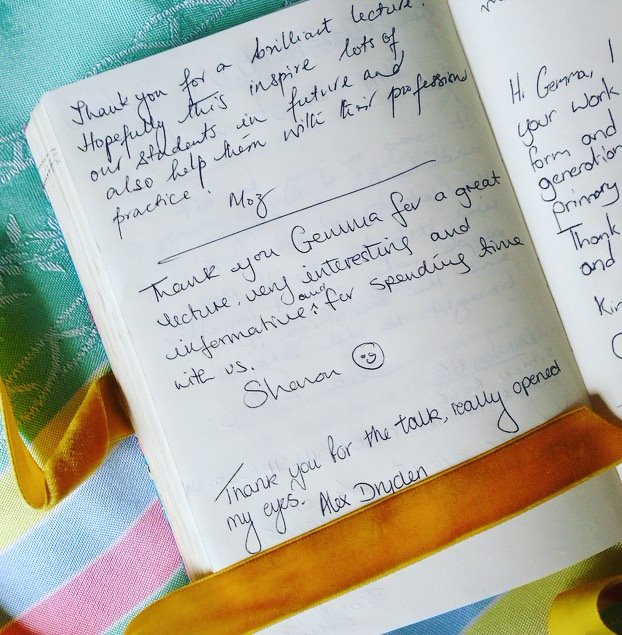 Thank you for a brilliant lecture.
Hopefully this inspire lots of
our students in future and
also help them with their professional
practice!
Moz
Thank you Gemma for a great
lecture, very interesting and
informative and for spending time
with us.
Sharon
Thank you for the talk, really opened
my eyes. Alex Dryden
Hi Gemma, I
your work
form and
generation
primary
Thank
and